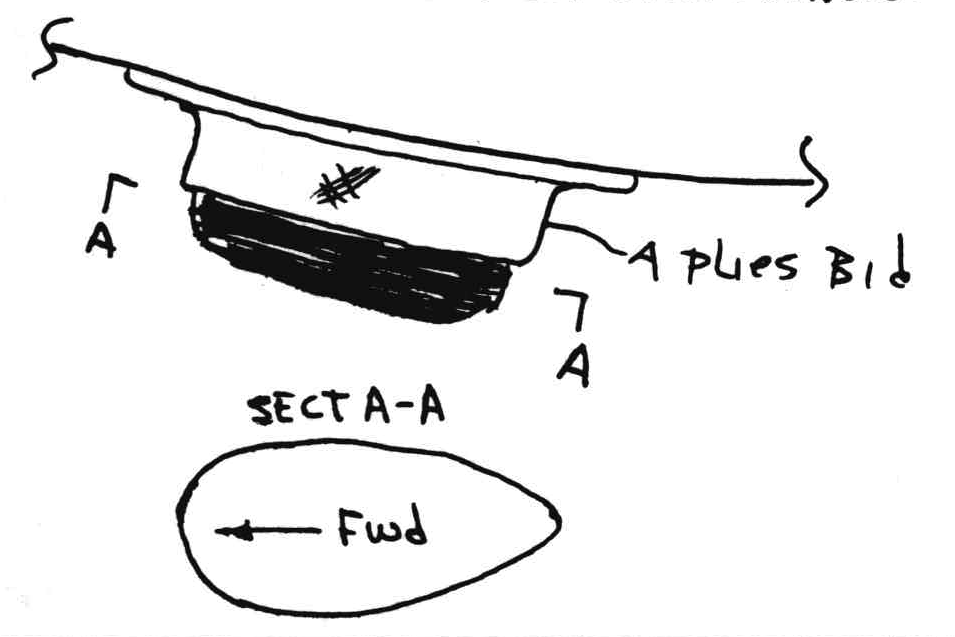 A
A plies Bid
A
SECT A-A
Fwd